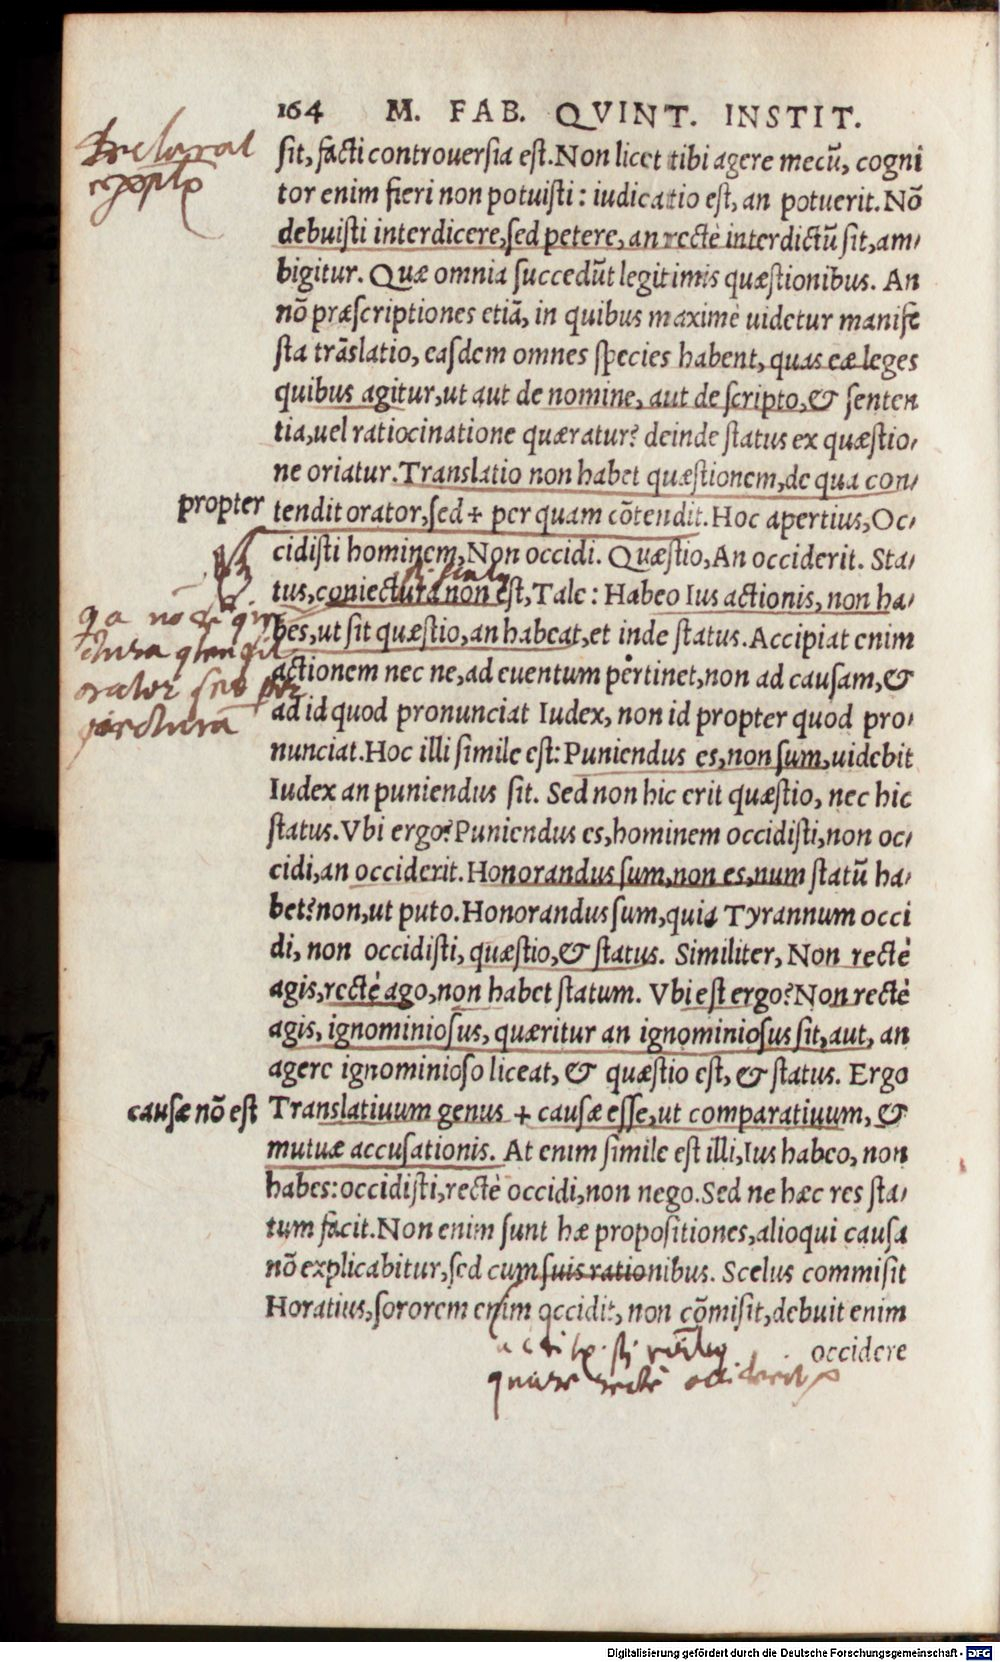 164 M. FAB. QVINT. INSTIT.
Declarat
exẽplo
sit, facti controuersia est. Non licet tibi agere mecũ, cogni
tor enim fieri non potuisti: iudicatio est, an potuerit. Nõ
debuisti interdicere, sed petere, an rectè interdictũ sit, am/
bigitur. Quæ omnia succedũt legitimis quæstionibus. An
nõ præscriptiones etiã, in quibus maximè uidetur manife
sta trãslatio, easdem omnes species habent, quas eæ leges
quibus agitur, ut aut de nomine, aut de scripto, & senten
tia, uel ratiocinatione quæratur? deinde status ex quæstio/
ne oriatur. Translatio non habet quæstionem, de qua con/
propter
tendit orator, sed + per quam cõtendit. Hoc apertius, Oc/
cidisti hominem, Non occidi. Quæstio, An occiderit. Sta/
tus, coniectura non est, Tale: Habeo Ius actionis, non ha/
bes, ut sit quæstio, an habeat, et inde status. Accipiat enim
actionem nec ne, ad euentum pertinet, non ad causam, &
ad id quod pronunciat Iudex, non id propter quod pro/
nunciat. Hoc illi simile est: Puniendus es, non sum, uidebit
Iudex an puniendus sit. Sed non hic erit quæstio, nec hic
status. Vbi ergo? Puniendus es, hominem occidisti, non oc/
cidi, an occiderit. Honorandus sum, non es, num statũ ha/
bet? non, ut puto. Honorandus sum, quia Tyrannum occi
di, non occidisti, quæstio, & status. Similiter, Non rectè
agis, rectè ago, non habet statum. Vbi est ergo? Non rectè
agis, ignominiosus, quæritur an ignominiosus sit, aut, an
agere ignominioso liceat, & quæstio est, & status. Ergo
causæ nõ est
Translatiuum genus + causæ esse, ut comparatiuum, &
mutuæ accusationis. At enim simile est illi, Ius habeo, non
habes: occidisti, rectè occidi, non nego. Sed ne hæc res sta/
tum facit. Non enim sunt hæ propositiones, alioqui causa
nõ explicabitur, sed cum suis rationibus. Scelus commisit
Horatius, sororem enim occidit, non cõmisit, debuit enim
occidere
quare rectè occiderit
Digitalisierung gefördert durch die Deutsche Forschungsgemeinschaft - DFG